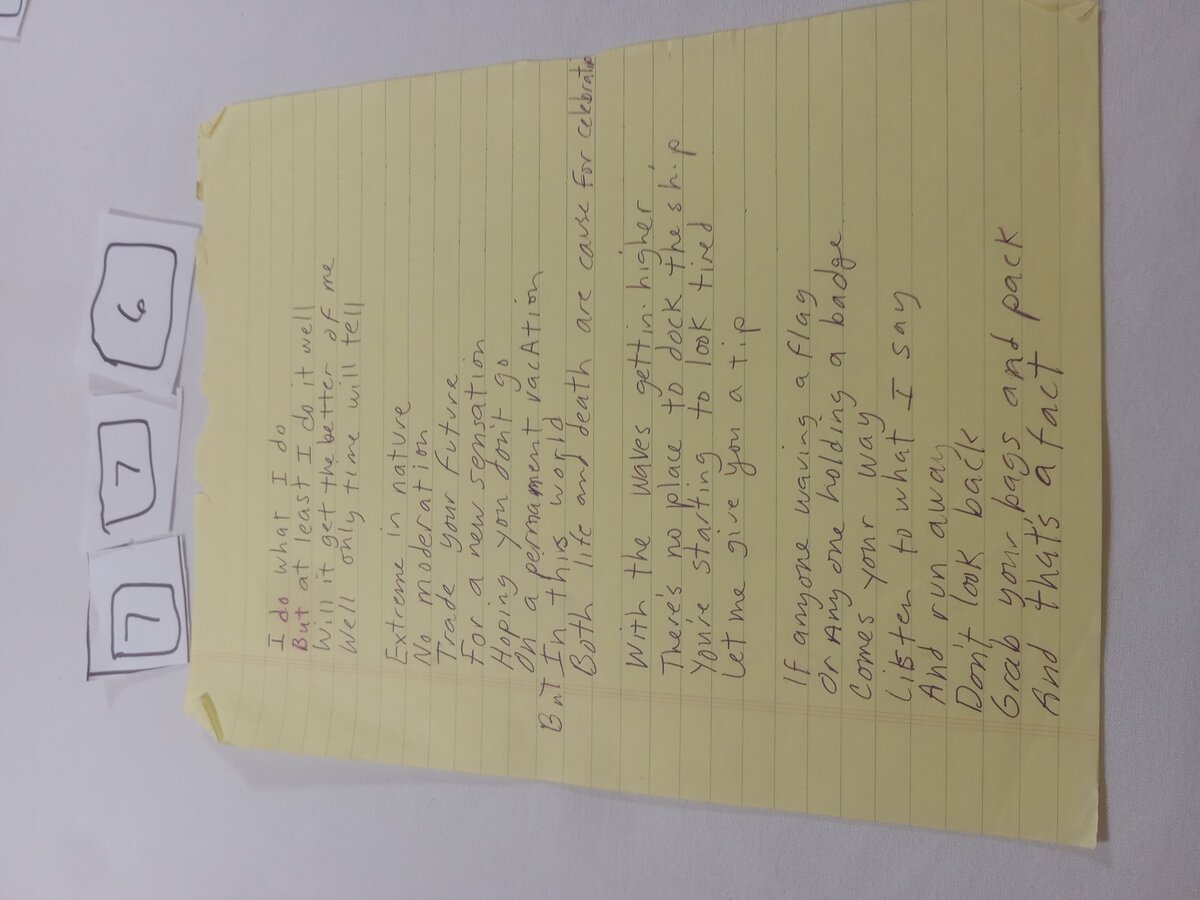 7 7 6
I do what I do
But at least I do it well
Will it get the better of me
Well only time will tell
Extreme in nature
No moderation
Trade your future
For a new sensation
Hoping you don't go
On a permament vacAtion
But In this world
Both life and death are cause for celebratio
With the waves gettin higher
There's no place to dock the ship
You're starting to look tired
Let me give you a tip
If anyone waving a flag
Or Any one holding a badge
Comes your way
Listen to what I say
And run away
Don't look back
Grab your bags and pack
And that's a fact